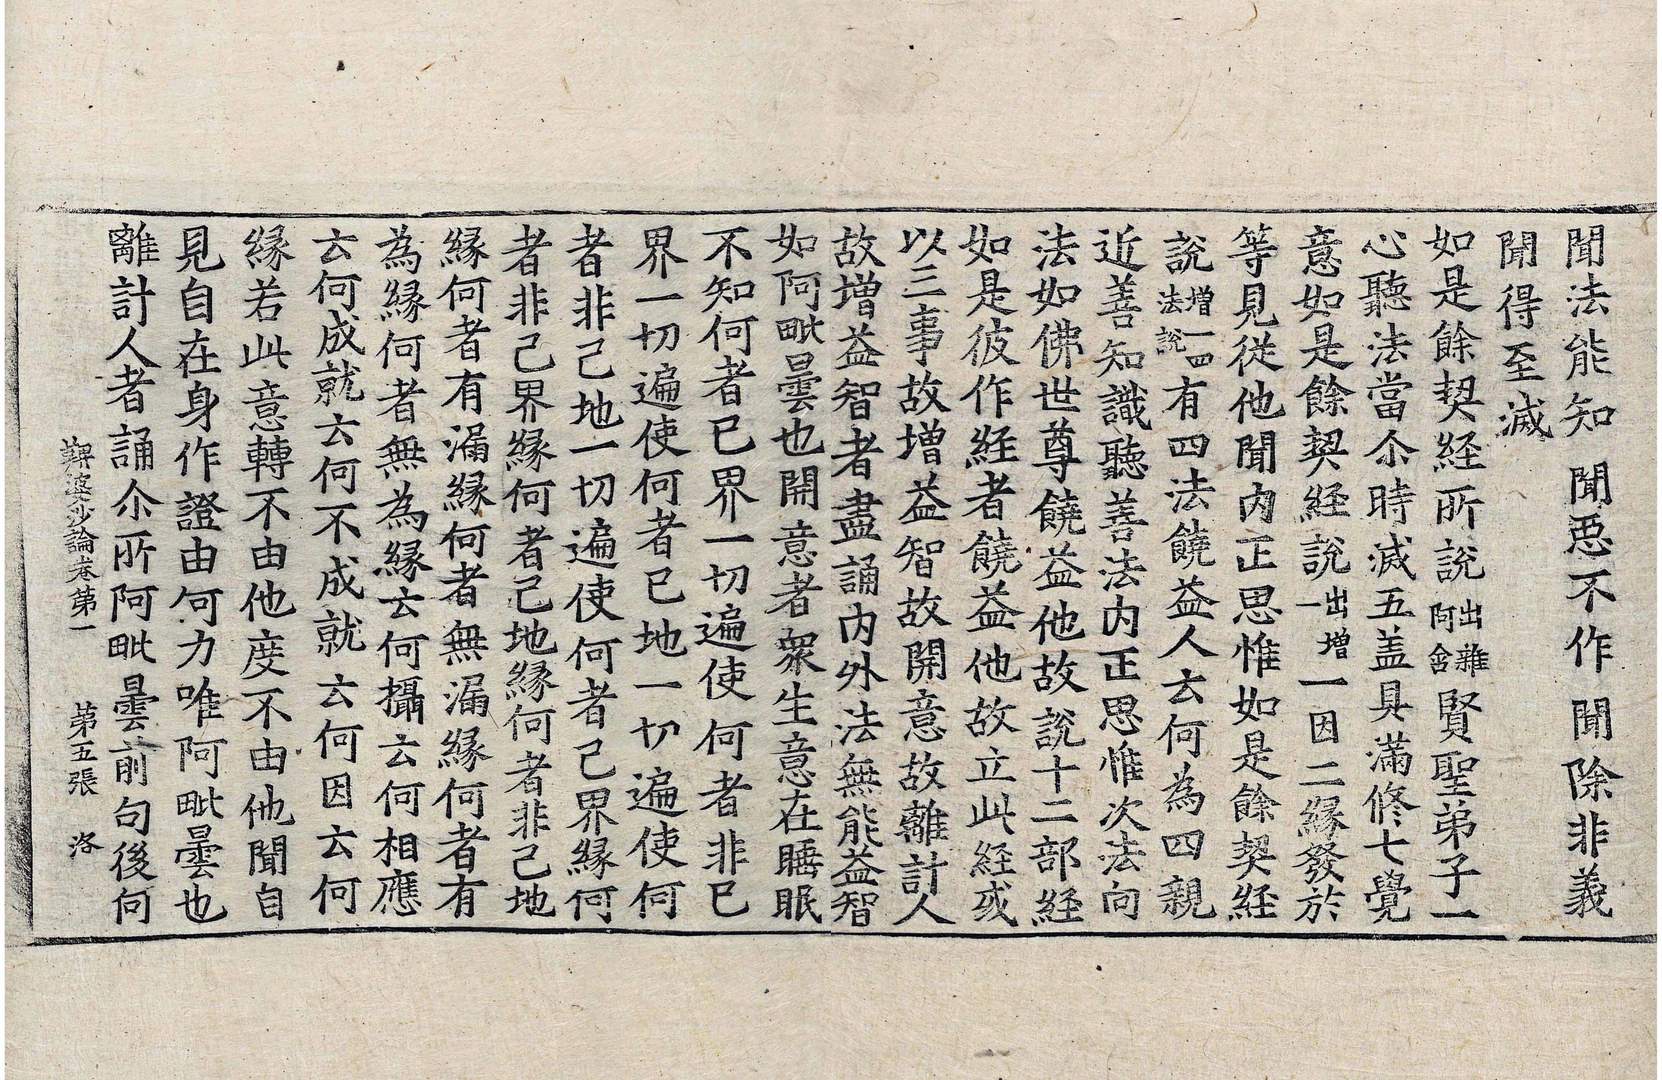 聞法能知 聞惡不作 聞除非義
聞得至滅
如是餘契經所說出雜阿含賢聖弟子一
心聽法當尒時滅五盖具滿修七覺
意如是餘契經說出增一一因二緣發於
等見從他聞內正思惟如是餘契經
說增一四法說有四法饒益人云何為四親
近善知識聽善法內正思惟次法向
法如佛世尊饒益他故說十二部經
如是彼作經者饒益他故立此經或
以三事故增益智故開意故離計人
故增益智者盡誦內外法無能益智
如阿毗曇也開意者衆生意在睡眠
不知何者已界一切遍使何者非已
界一切遍使何者已地一切遍使何
者非己地一切遍使何者己界緣何
者非己界緣何者己地緣何者非己地
緣何者有漏緣何者無漏緣何者有
為緣何者無為緣云何攝云何相應
云何成就云何不成就云何因云何
緣若此意轉不由他度不由他聞自
見自在身作證由何力唯阿毗曇也
離計人者誦尒所阿毗曇前句後句
鞞婆沙論卷第一 第五張 洛